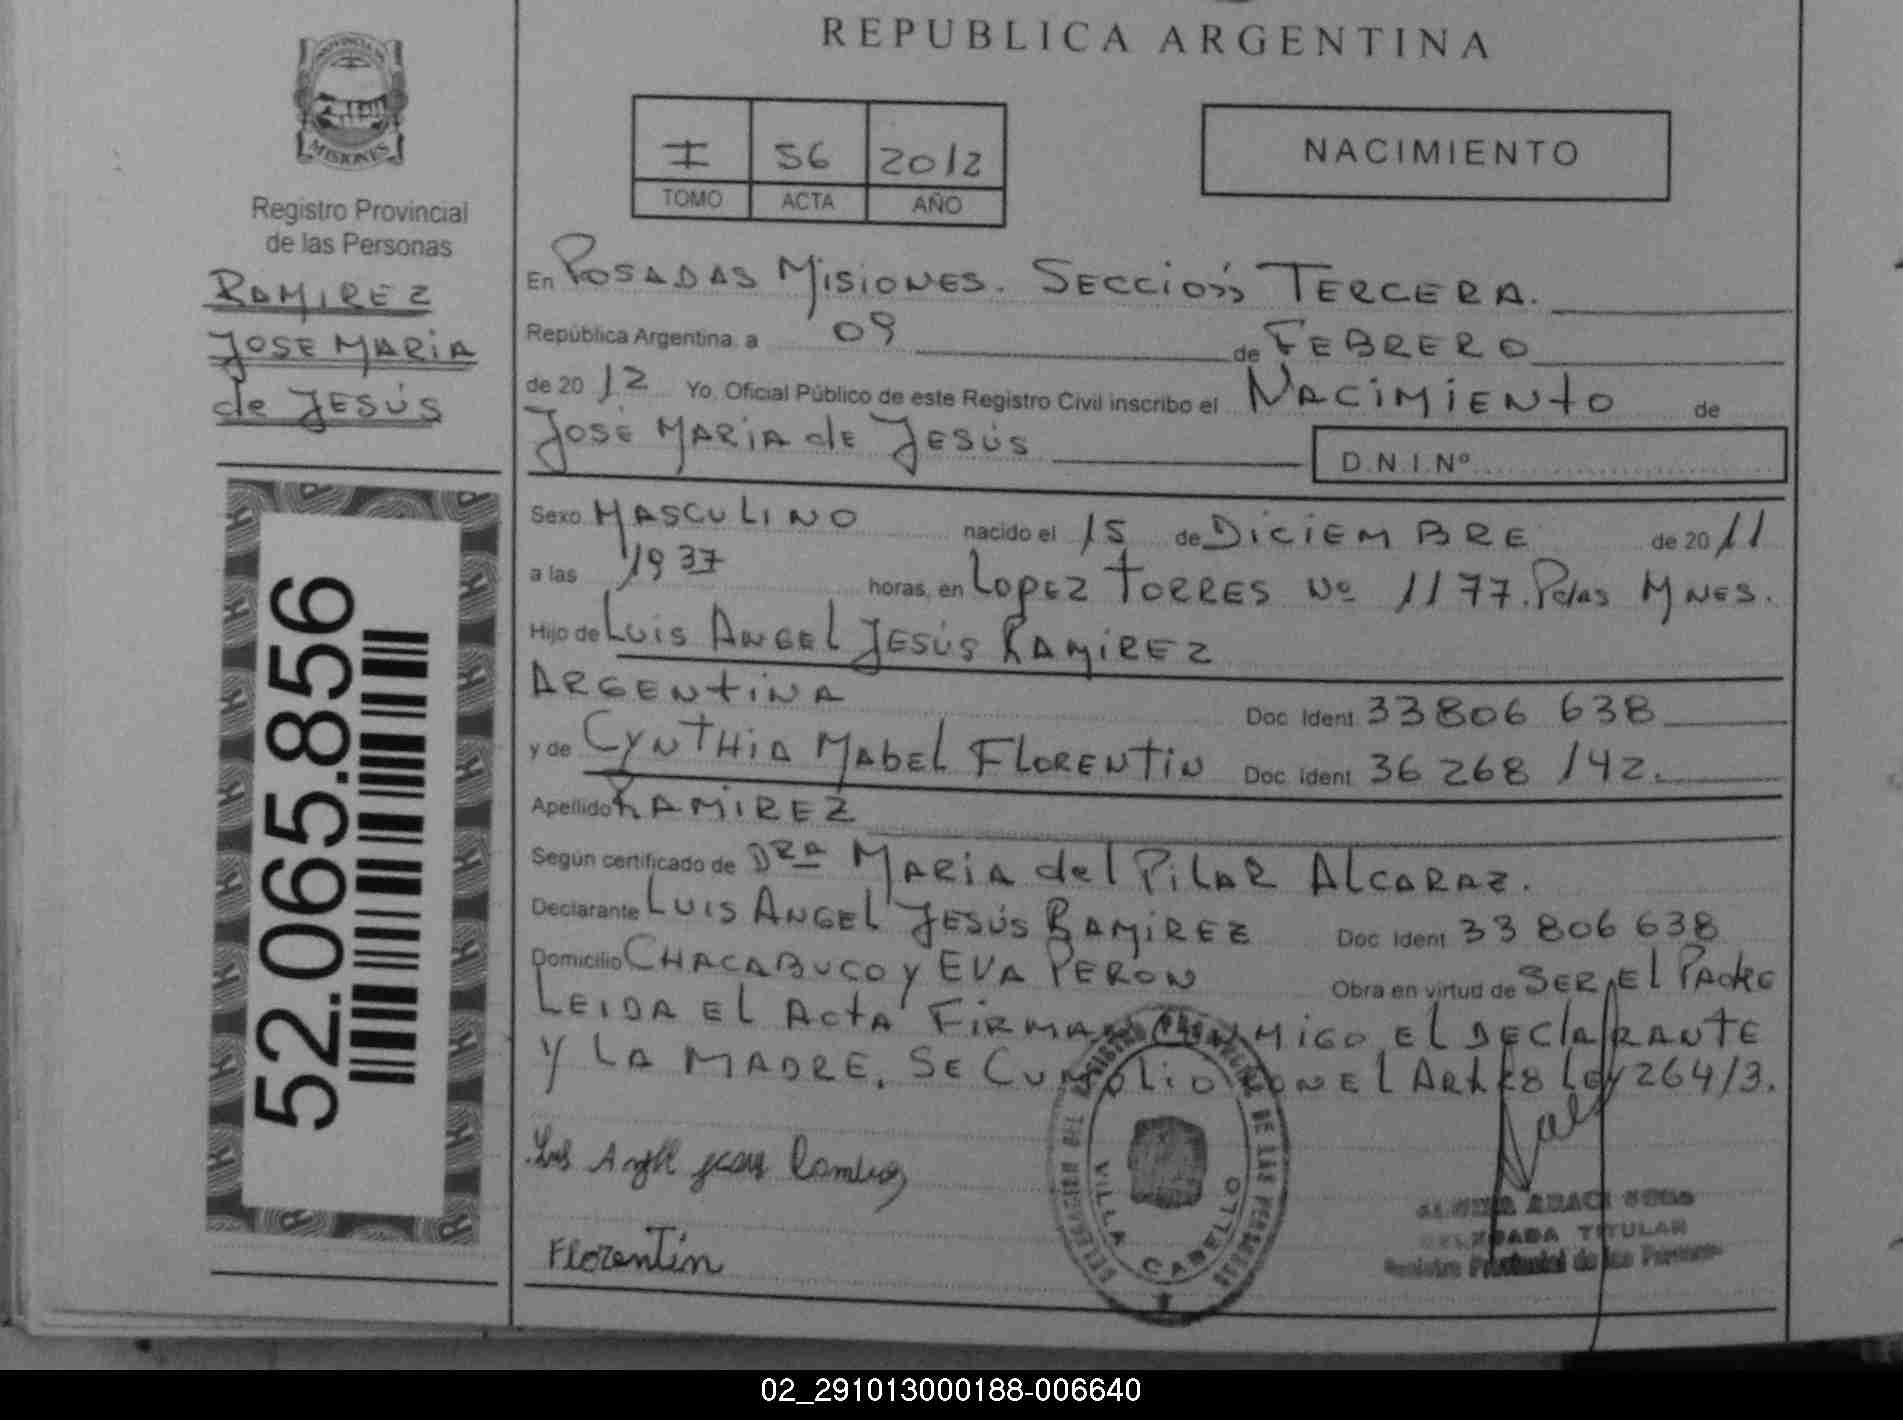 REPUBLICA ARGENTINA
PROVINCIA DE
MISIONES
Registro Provincial
de las Personas
RAMIREZ
JOSE MARIA
de JESÚS
52.065.856
I 56 2012
TOMO ACTA AÑO
NACIMIENTO
En POSADAS MISIONES. SECCIÓN TERCERA.
República Argentina, a 09 de FEBRERO
de 2012 Yo, Oficial Público de este Registro Civil inscribo el NACIMIENTO de
JOSÉ MARIA de JESÚS D.N.I.Nº
Sexo MASCULINO nacido el 15 de DICIEMBRE de 2011
a las 19 37 horas, en LOPEZ TORRES Nº 1177. Pdas MNES.
Hijo de LUIS ANGEL JESÚS RAMIREZ
ARGENTINA Doc. Ident. 33806 638
y de CYNTHIA MABEL FLORENTIN Doc. Ident. 36 268 142.
Apellido RAMIREZ
Según certificado de DRA MARIA del PILAR ALCARAZ.
Declarante LUIS ANGEL JESÚS RAMIREZ Doc. Ident. 33 806 638
Domicilio CHACABUCO y EVA PERON Obra en virtud de SER EL PADRE
LEIDA EL ACTA FIRMAN CONMIGO EL DECLARANTE
Y LA MADRE. SE CUMPLIO CON EL ART. Ley 26413.
Luis Angel Jesus Ramirez
Florentin
VILLA CABELLO
DE LAS PERSONAS
ARACI
DELEGADA TITULAR
Registro Provincial de las Personas
02_291013000188-006640